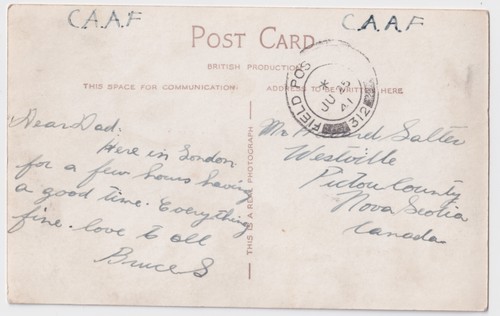 C.A.A.F
C.A.A.F
POST CARD
BRITISH PRODUCTION
THIS SPACE FOR COMMUNICATION.
ADDRESS TO BE WRITTEN HERE
FIELD POS
JU 25
41
312
THIS IS A REAL PHOTOGRAPH
Dear Dad:
Here in London
for a few hours having
a good time. Everything
fine. love to all
Bruce S
Mr Salter
Westville
Pictou County
Nova Scotia
Canada